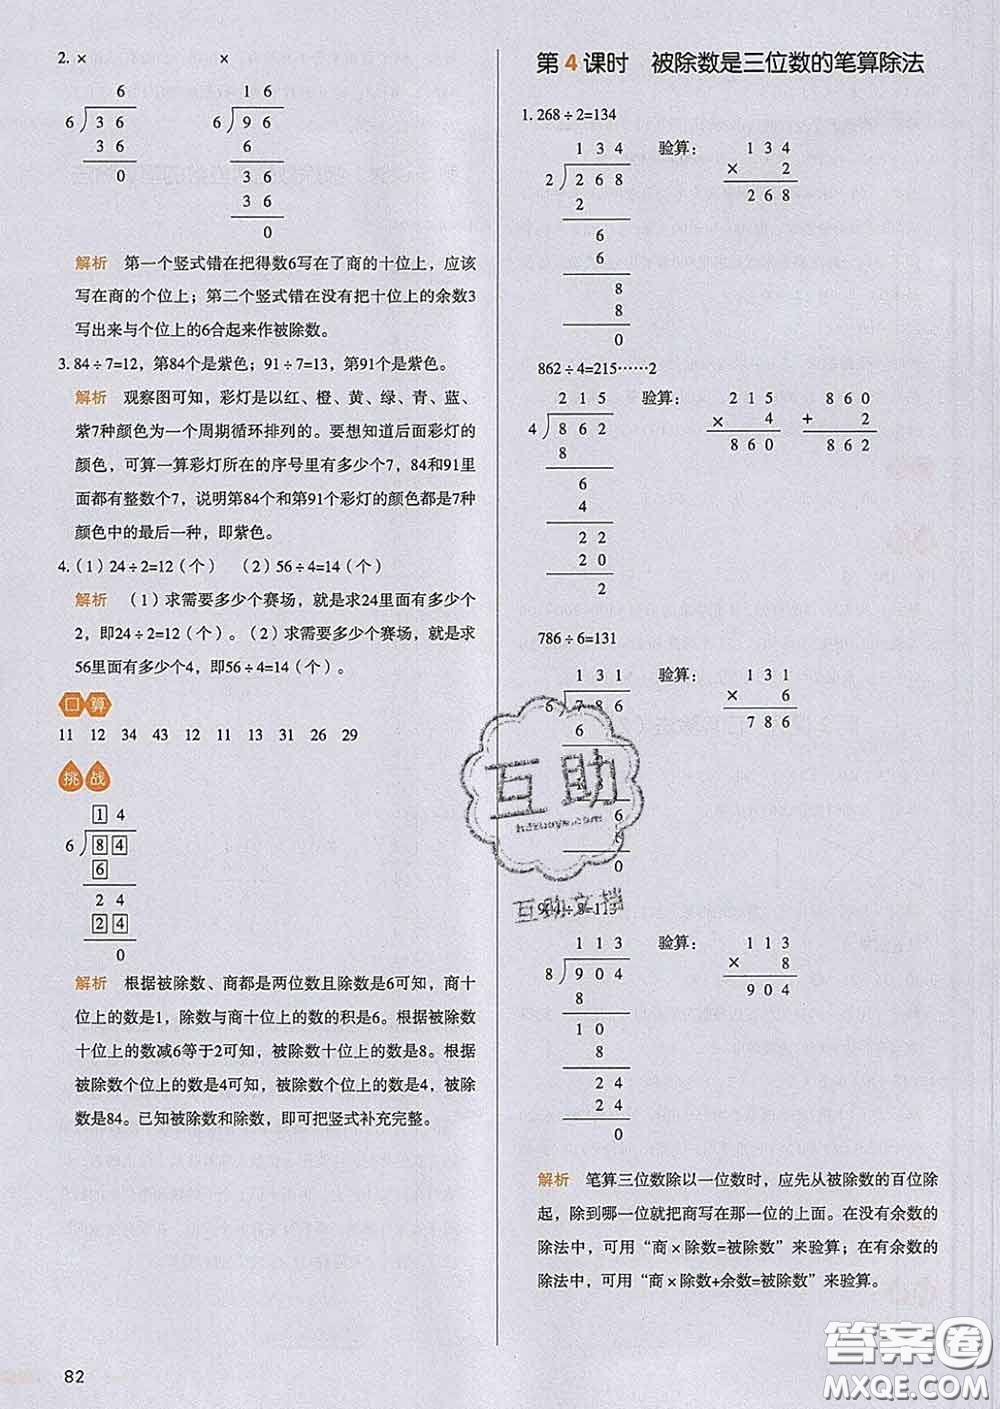 2. ×　×
6
6 3 6
3 6
0
1 6
6 9 6
6
3 6
3 6
0
解析　第一个竖式错在把得数6写在了商的十位上，应该
写在商的个位上；第二个竖式错在没有把十位上的余数3
写出来与个位上的6合起来作被除数。
3. 84÷7=12，第84个是紫色；91÷7=13，第91个是紫色。
解析　观察图可知，彩灯是以红、橙、黄、绿、青、蓝、
紫7种颜色为一个周期循环排列的。要想知道后面彩灯的
颜色，可算一算彩灯所在的序号里有多少个7，84和91里
面都有整数个7，说明第84个和第91个彩灯的颜色都是7种
颜色中的最后一种，即紫色。
4.（1）24÷2=12（个）　（2）56÷4=14（个）
解析　（1）求需要多少个赛场，就是求24里面有多少个
2，即24÷2=12（个）。（2）求需要多少个赛场，就是求
56里面有多少个4，即56÷4=14（个）。
口算
11　12　34　43　12　11　13　31　26　29
挑战
1 4
6 8 4
6
2 4
2 4
0
解析　根据被除数、商都是两位数且除数是6可知，商十
位上的数是1，除数与商十位上的数的积是6。根据被除数
十位上的数减6等于2可知，被除数十位上的数是8。根据
被除数个位上的数是4可知，被除数个位上的数是4，被除
数是84。已知被除数和除数，即可把竖式补充完整。
82
第4课时　被除数是三位数的笔算除法
1. 268÷2=134
1 3 4
2 2 6 8
2
6
6
8
8
0
验算：　1 3 4
× 2
2 6 8
862÷4=215……2
2 1 5
4 8 6 2
8
6
4
2 2
2 0
2
验算：　2 1 5
× 4
8 6 0
8 6 0
+ 2
8 6 2
786÷6=131
1 3 1
6 7 8 6
6
6
0
验算：　1 3 1
× 6
7 8 6
904÷8=113
1 1 3
8 9 0 4
8
1 0
8
2 4
2 4
0
验算：　1 1 3
× 8
9 0 4
解析　笔算三位数除以一位数时，应先从被除数的百位除
起，除到哪一位就把商写在那一位的上面。在没有余数的
除法中，可用“商×除数=被除数”来验算；在有余数的
除法中，可用“商×除数+余数=被除数”来验算。
互助
hdzuoye.com
互助文档
答案圈
MXQE.COM